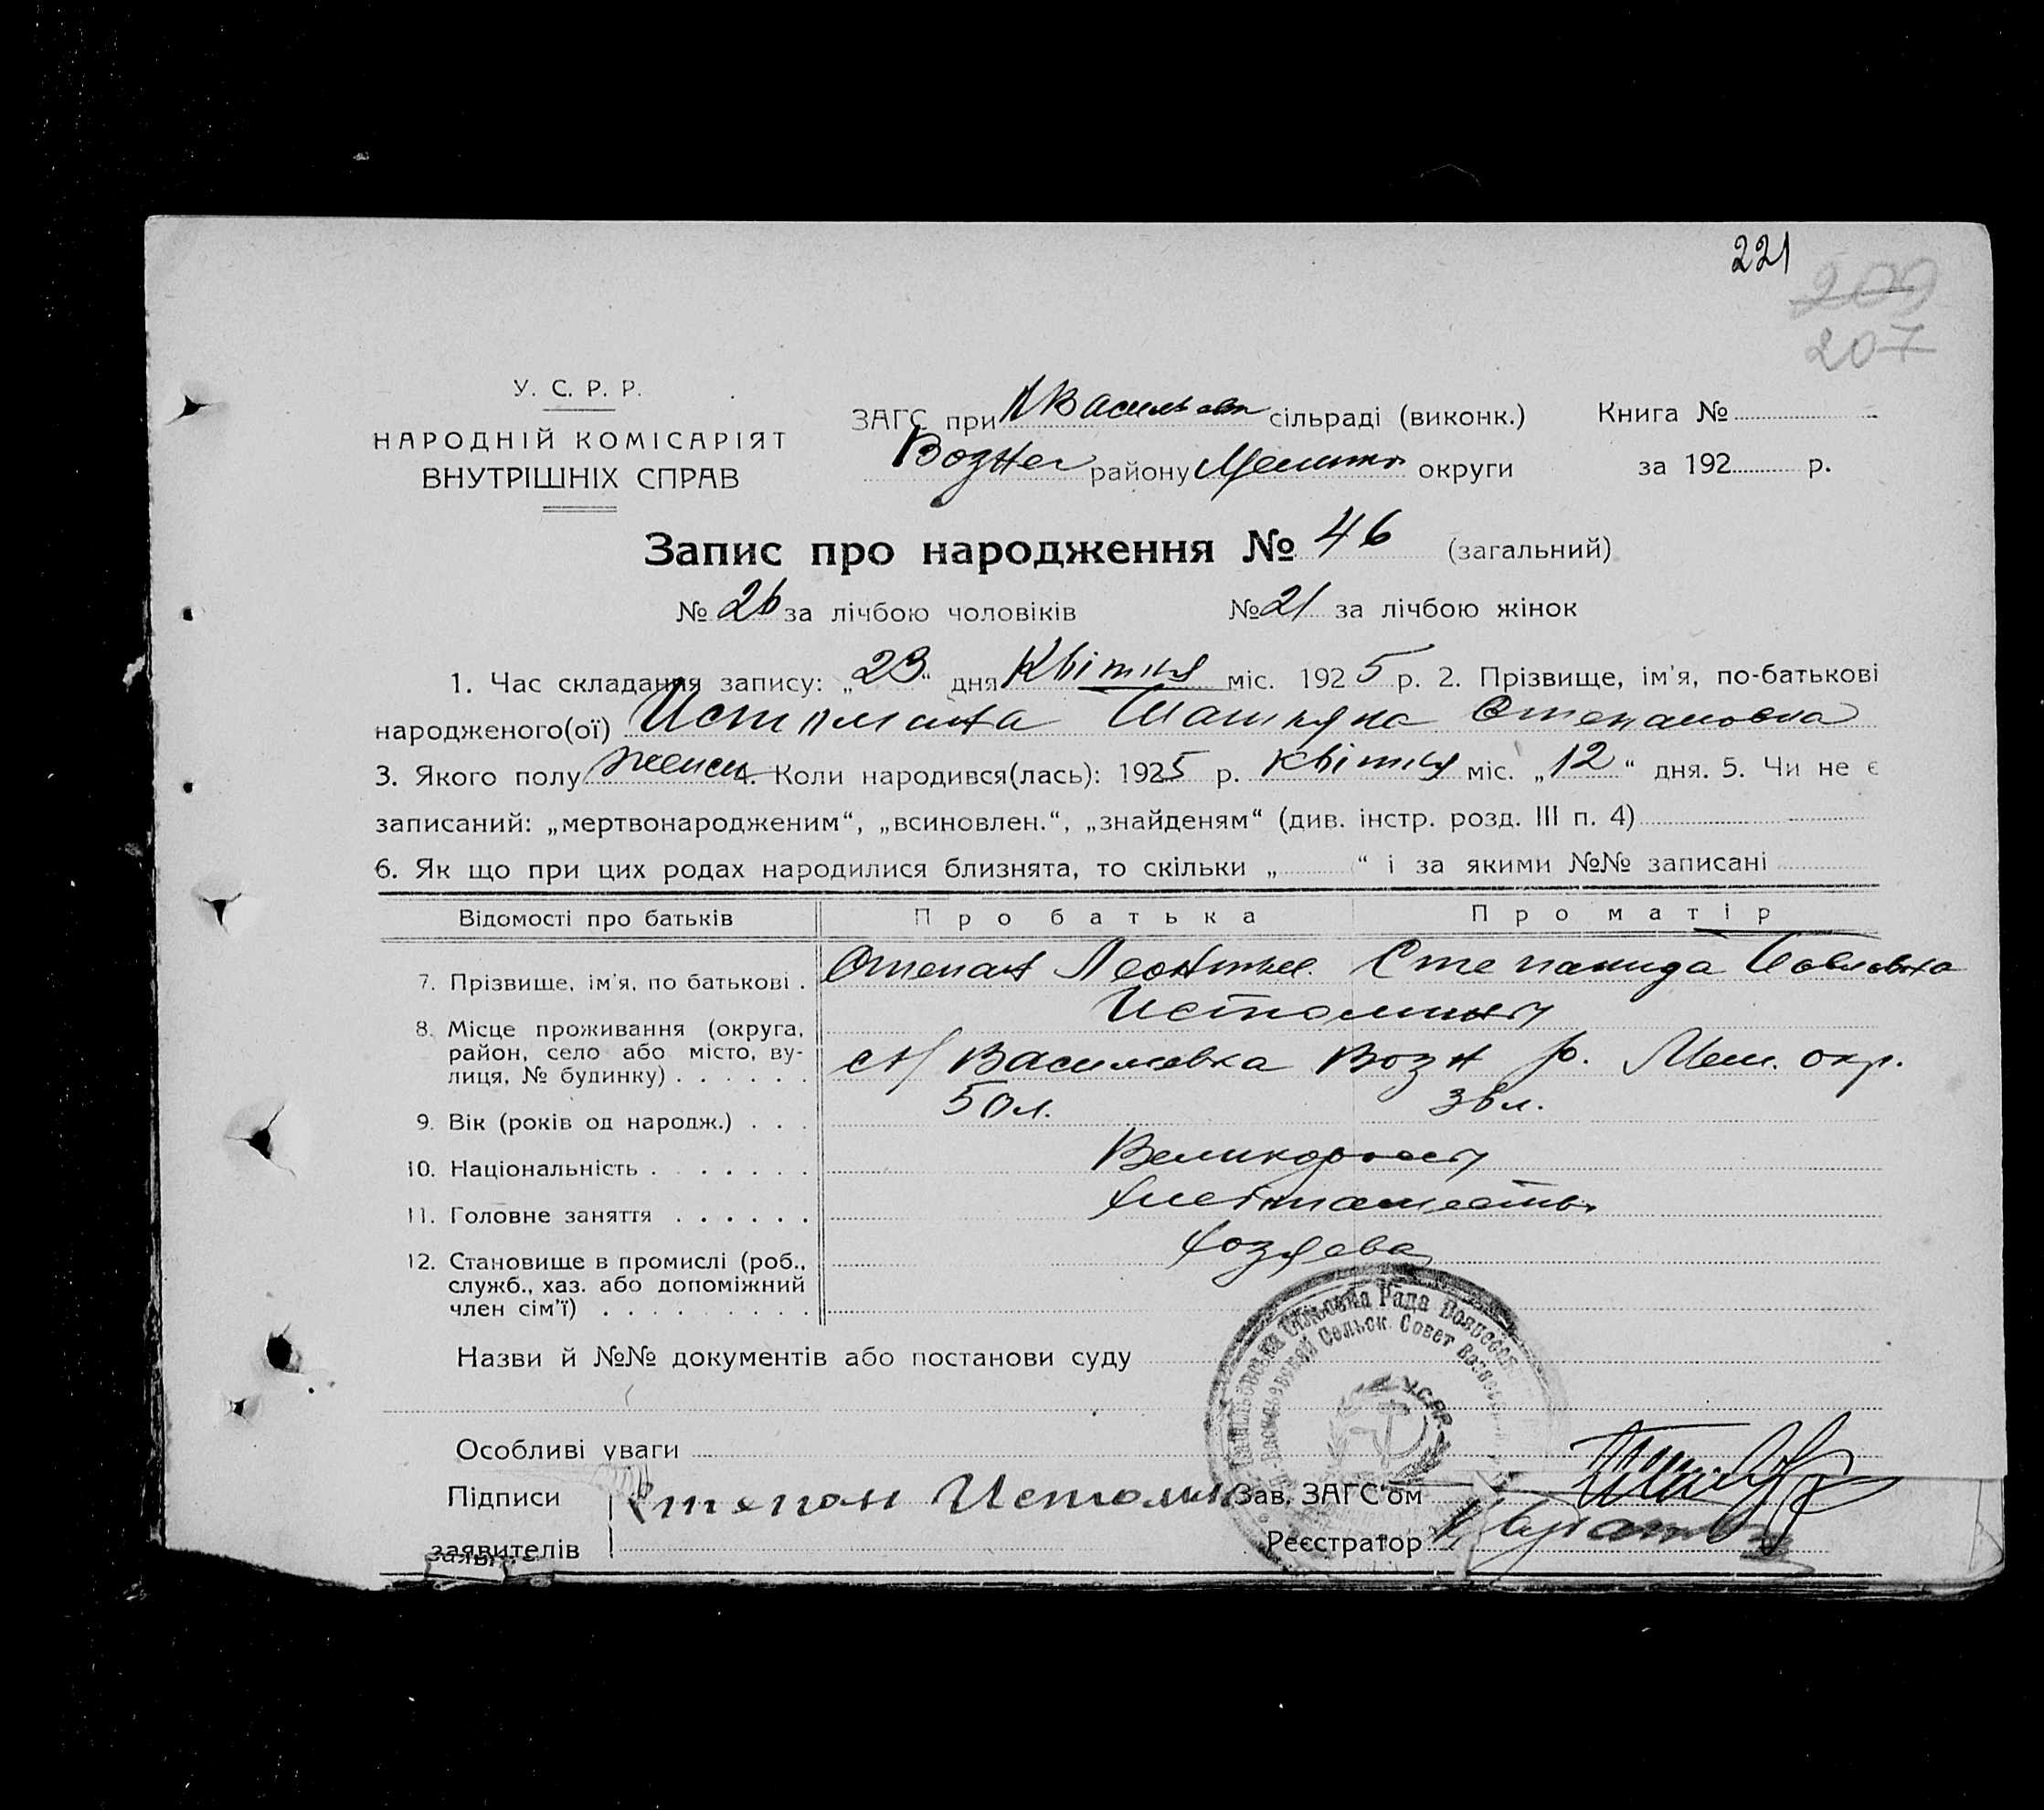 221
209
207
У. С. Р. Р.
НАРОДНІЙ КОМІСАРІЯТ
ВНУТРІШНІХ СПРАВ
ЗАГС при сільраді (виконк.) Книга №
Вознес району округи за 192 р.
Запис про народження № 46 (загальний)
№ 26 за лічбою чоловіків № 21 за лічбою жінок
1. Час складання запису: „23“ дня Квітня міс. 1925 р. 2. Прізвище, ім'я, по-батькові
народженого(ої) Истомина Степановна
3. Якого полу женск 4. Коли народився(лась): 1925 р. Квітня міс. „12“ дня. 5. Чи не є
записаний: „мертвонародженим“, „всиновлен.“, „знайденям“ (див. інстр. розд. III п. 4)
6. Як що при цих родах народилися близнята, то скільки „ “ і за якими №№ записані
Відомості про батьків Про батька Про матір
7. Прізвище, ім'я, по батькові . Степан Леонтьев. Степанида
Истомины
8. Місце проживання (округа, район, село або місто, вулиця, № будинку) . . . . . . Василевка Возн р. Мел. окр.
9. Вік (років од народж.) . . . 50 л. 36 л.
10. Національність . . . . . . . Великоросы
11. Головне заняття . . . . . .
12. Становище в промислі (роб., служб., хаз. або допоміжний член сім'ї) . . . . . . . . . Хозяева
Назви й №№ документів або постанови суду
Особливі уваги
Підписи Степан Истомин Зав. ЗАГС'ом
заявителів Реєстратор
Рада
Сельск. Совет
У.С.Р.Р.